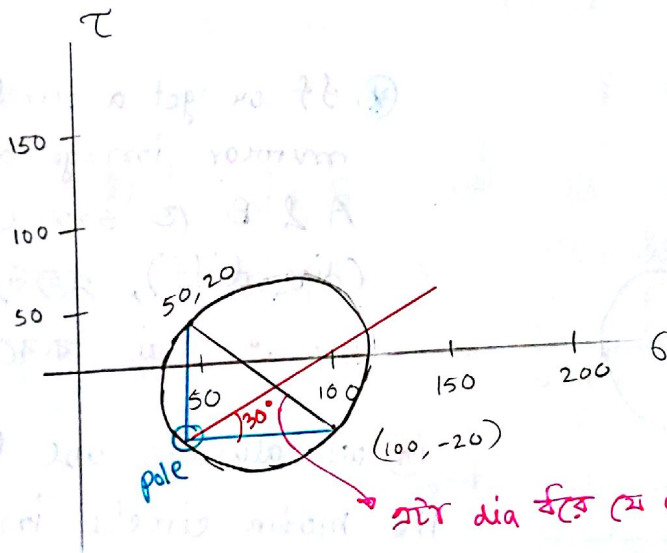 τ
150
100
50
50, 20
50
100
150
200
6
30°
(100, -20)
pole
এটার dia ধরে যে